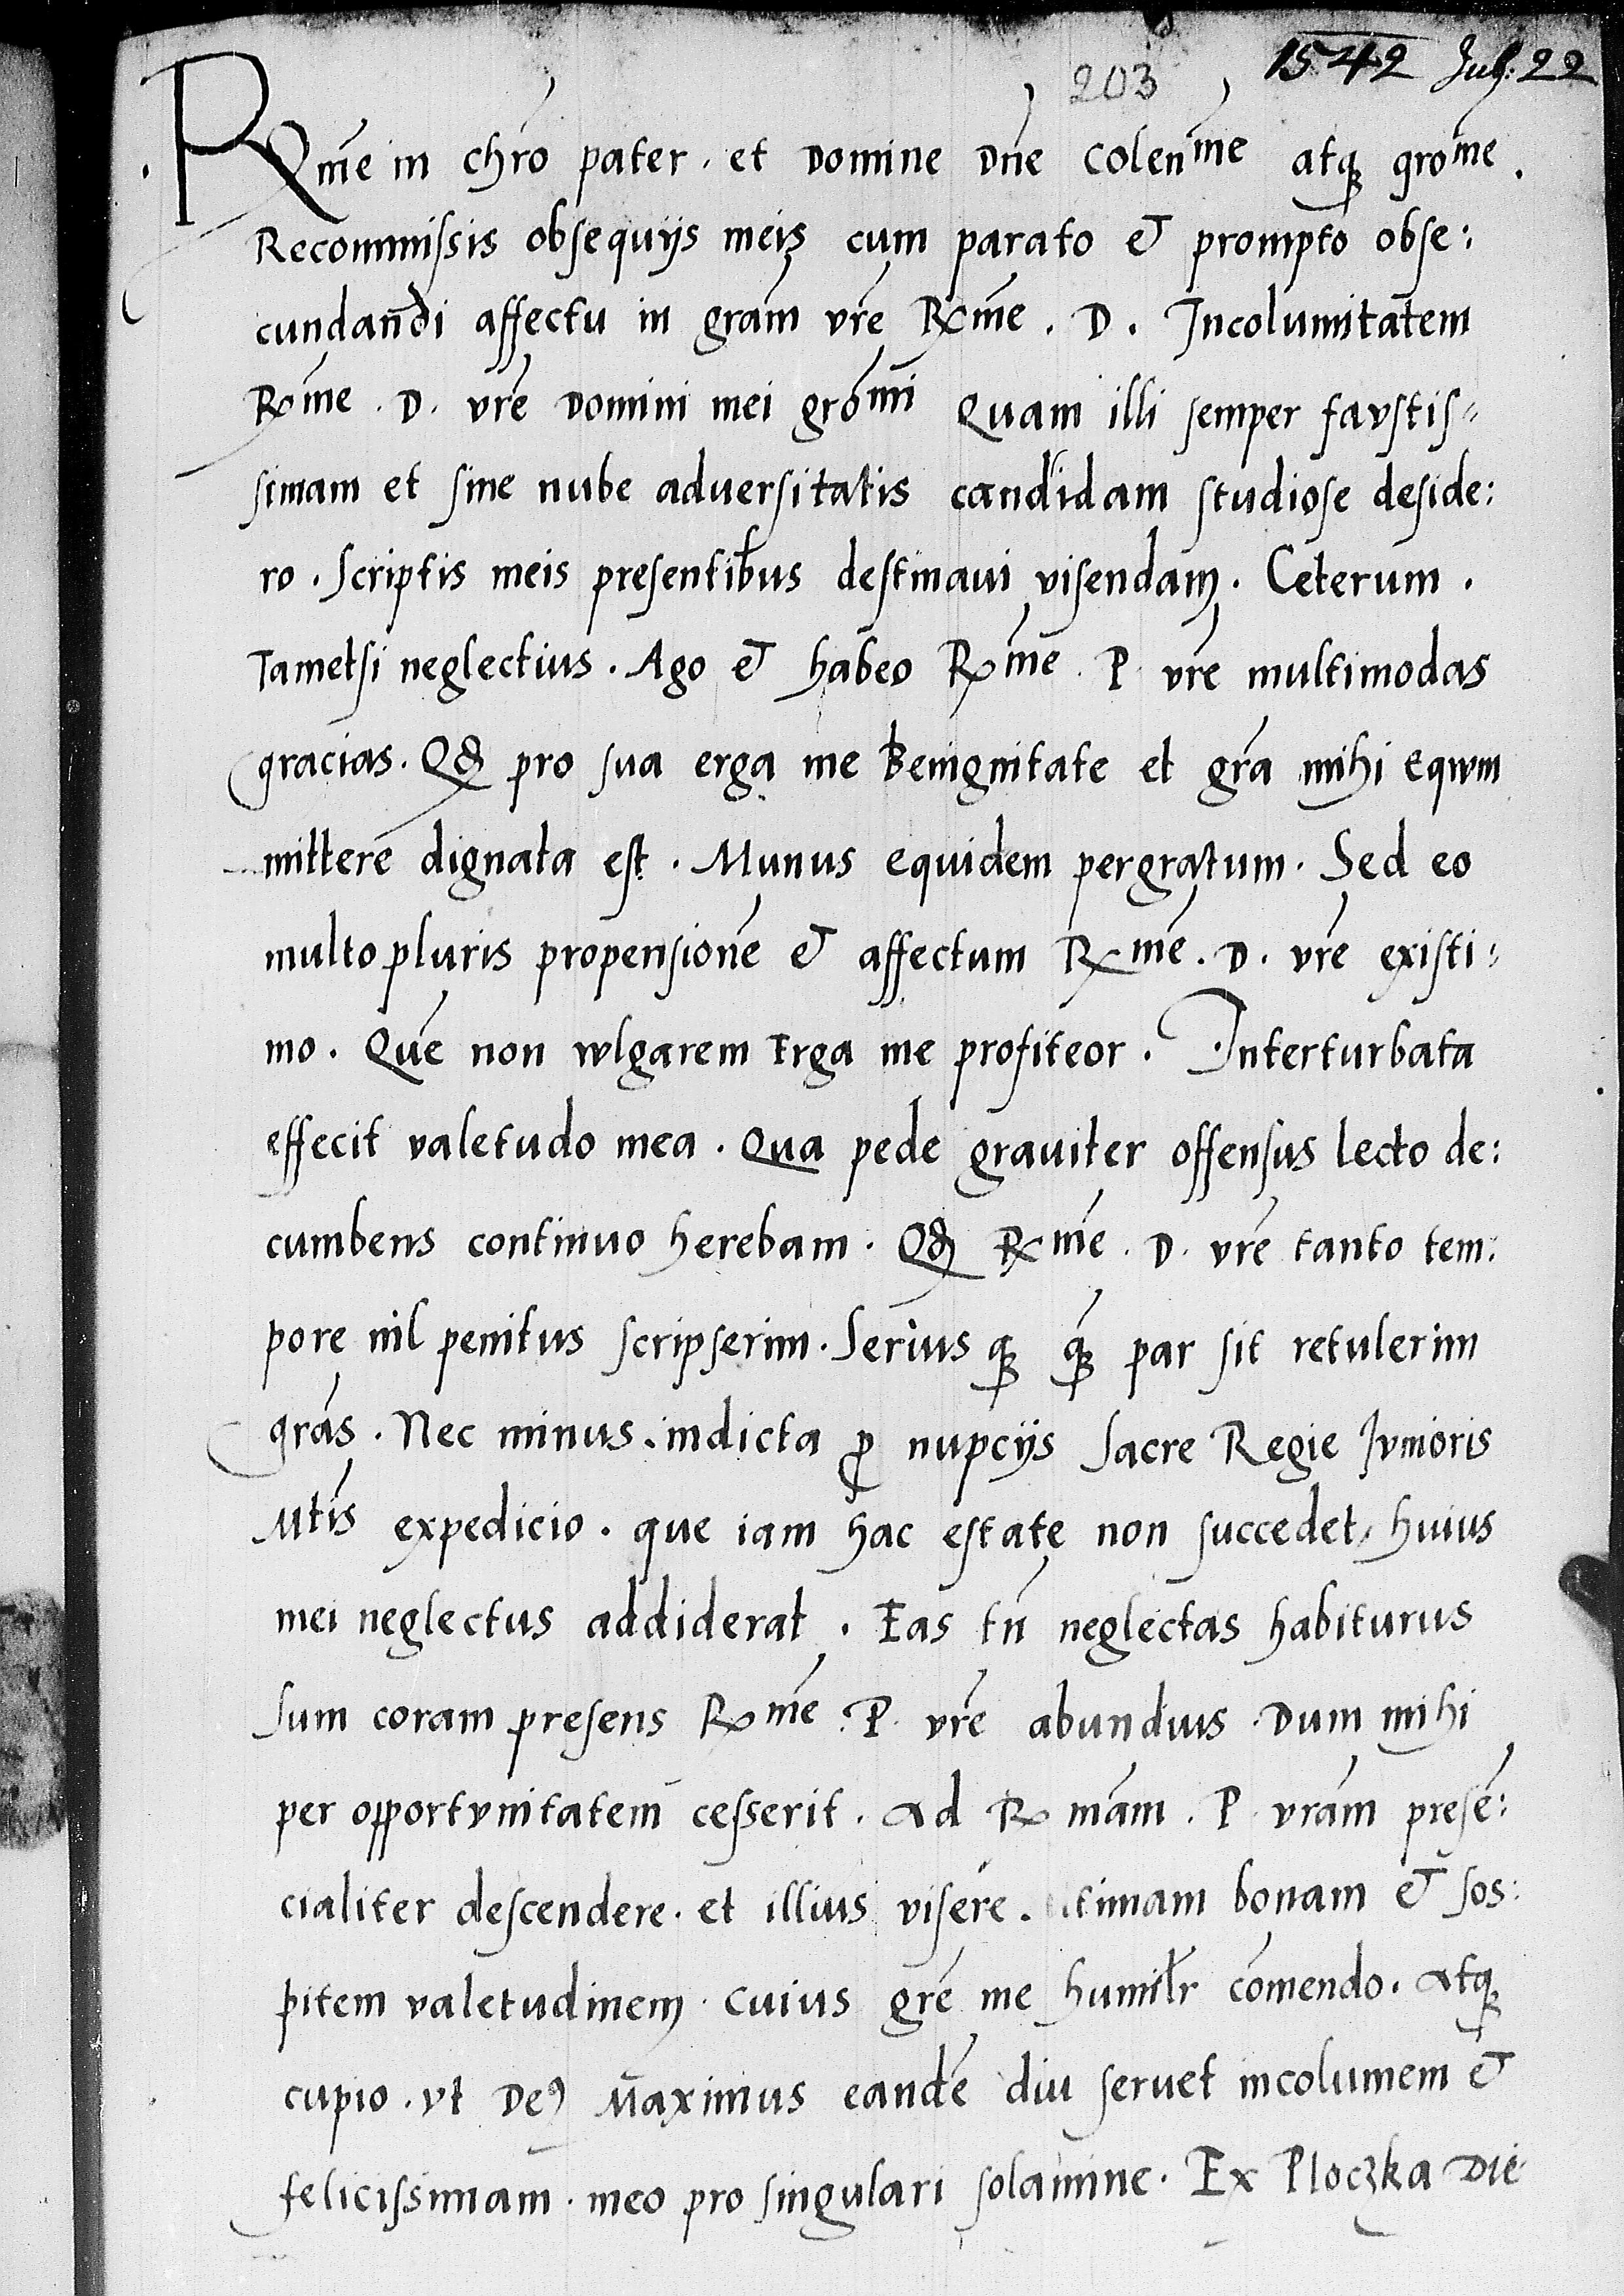 203 1542 Jul: 22
Rme in chro pater. et Domine Dne Colenme atq gromе.
Recommissis obsequijs meis cum parato & prompto obse:
cundandi affectu in gram vre Rme. D. Incolumitatem
Rme. D. vre Domini mei gromi Quam illi semper favstis=
simam et sine nube aduersitatis candidam studiose deside:
ro. Scriptis meis presentibus destinaui visendam. Ceterum.
Tametsi neglectius. Ago & habeo Rme P. vre multimodas
gracias. Qd pro sua erga me Benignitate et gra mihi Eqwm
mittere dignata est. Munus equidem pergratum. Sed eo
multo pluris propensione & affectum Rme. D. vre existi:
mo. Que non wlgarem Erga me profiteor. Interturbata
effecit valetudo mea. Qua pede grauiter offensus lecto de:
cumbens continuo herebam. Qd Rme. D. vre tanto tem:
pore nil penitus scripserim. Serius q q par sit retulerim
gras. Nec minus. indicta p nupcijs Sacre Regie Jvnioris
Mtis expedicio. que iam hac estate non succedet, huius
mei neglectus addiderat. Eas tn neglectas habiturus
Sum coram presens Rme. P. vre abundius. Dum mihi
per opportvnitatem cesserit. Ad R mam. P. vram prese:
cialiter descendere. et illius visere. timam bonam & sos:
pitem valetudinem. Cuius gre me humilr comendo. Atq
cupio. vt De9 Maximus eande diu seruet incolumem &
felicissimam. meo pro singulari solamine. Ex Ploczka Die